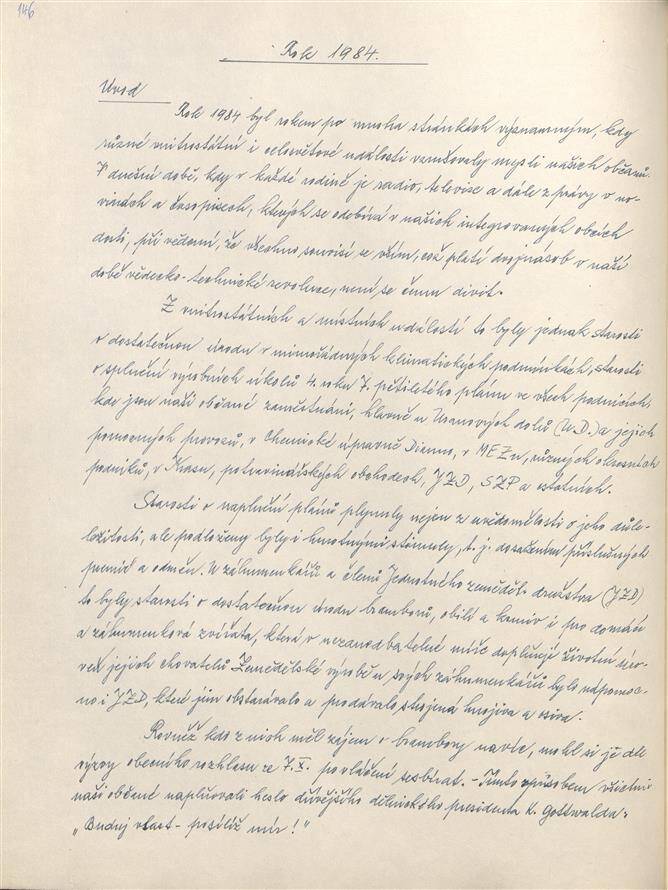 146
Rok 1984.
Úvod
Rok 1984 byl rokem po mnoha stránkách významným, kdy
různé vnitrostátní i celosvětové události vzrušovaly mysli našich občanů.
V dnešní době, kdy v každé rodině je radio, televise a dále zprávy v no-
vinách a časopisech, kterých se odebírá v našich integrovaných obcích
dosti, při vědomí, že všechno souvisí se vším, což platí dvojnásob v naší
době vědecko-technické revoluce, není se čemu divit.
Z vnitrostátních a místních událostí to byly jednak starosti
o dostatečnou úrodu v mimořádných klimatických podmínkách, starosti
o splnění výrobních úkolů 4. roku 7. pětiletého plánu ve všech podnicích,
kde jsou naši občané zaměstnáni, hlavně u Uranových dolů (U.D.) a jejich
pomocných provozů, v Chemické úpravně Diamo, v MEZu, různých okresních
podniků, v Krasu, potravinářských obchodech, JZD, SZP a ostatních.
Starosti o naplnění plánů plynuly nejen z uvědomělosti o jeho důle-
žitosti, ale podloženy byly i hmotnými stimuly, t. j. dosažením příslušných
premií a odměn. U záhumenkářů a členů Jednotného zeměděl. družstva (JZD)
to byly starosti o dostatečnou úrodu brambor, obilí a krmiv i pro domácí
a záhumenková zvířata, která v nezanedbatelné míře doplňují životní úro-
veň jejich chovatelů. Zemědělské výrobě u svých záhumenkářů bylo nápomoc-
no i JZD, které jim obstarávalo a prodávalo strojená hnojiva a osiva.
Rovněž kdo z nich měl zájem o brambory navíc, mohl si je dle
výzvy obecního rozhlasu ze 7.X. po vláčení sesbírat. - Tímto způsobem všichni
naši občané naplňovali heslo dřívějšího dělnického presidenta K. Gottwalda:
„Buduj vlast - posílíš mír!"